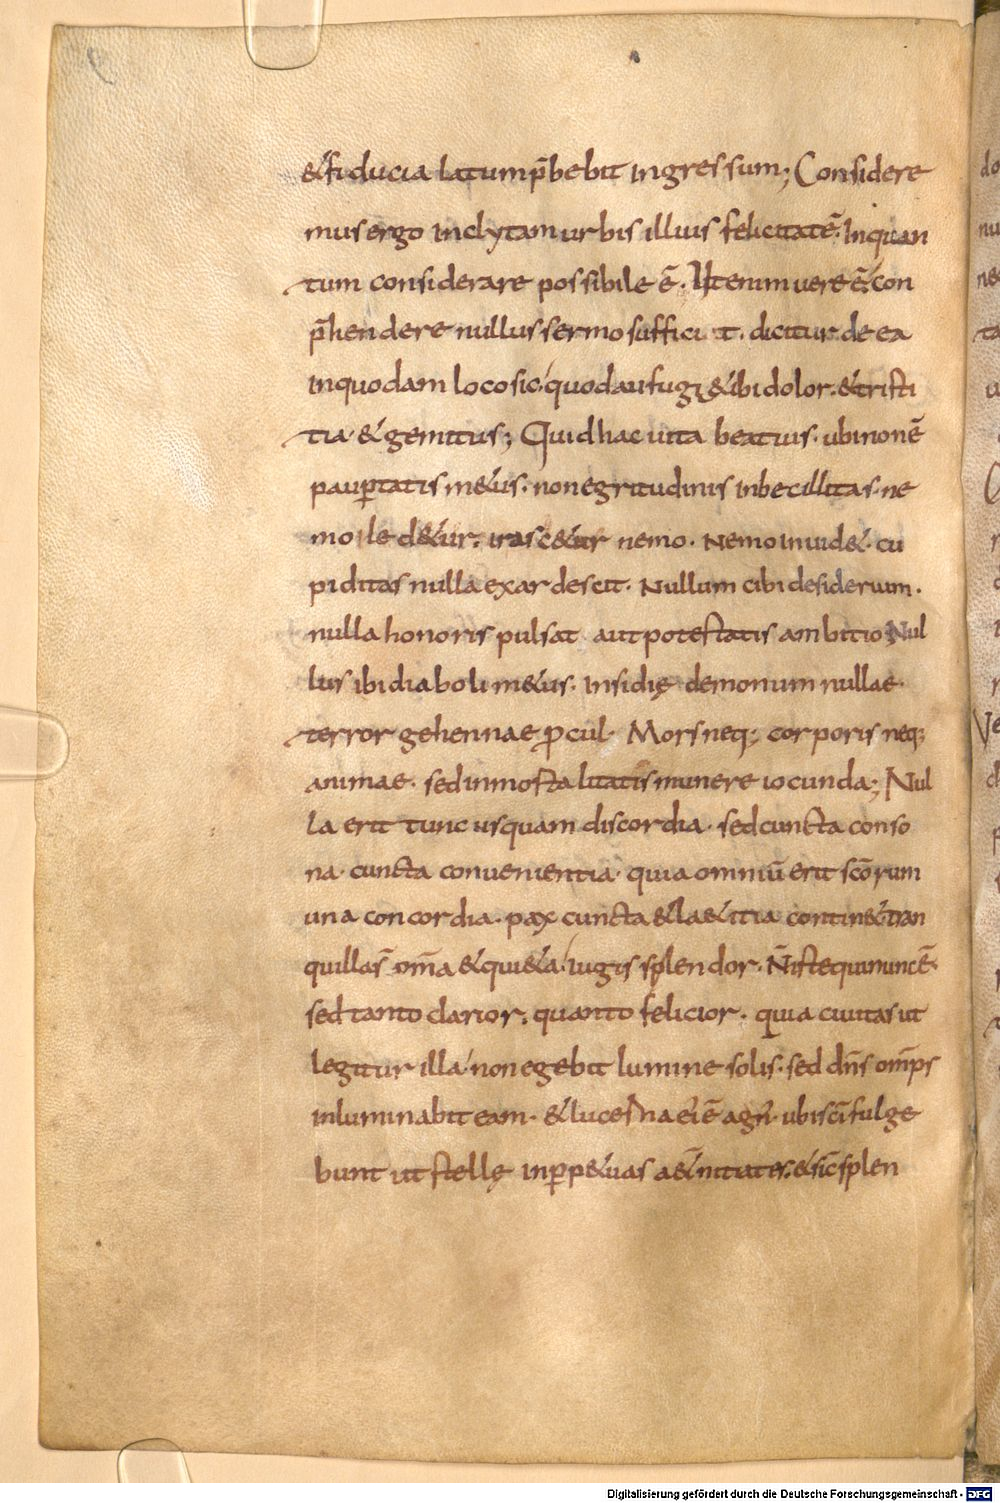 &fiducia latum p̄bebit ingressum; Considere
mus ergo inclytam urbis illius felicitatē. Inquan
tum considerare possibile ē. Ut enim vere ē con
p̄hendere nullus sermo sufficit. dicitur de ea
inquodam loco sic. quod aufugi& ibi dolor. & tristi
tia. & gemitus; Quid hac uita beatius. ubi non ē
paup̄tatis m&us. non egritudinis inbecillitas. ne
mo led&ur. irasc&ur nemo. Nemo inuid&. cu
piditas nulla exardescit. Nullum cibi desiderium.
nulla honoris pulsat aut potestatis ambitio Nul
lus ibi diaboli m&us. insidię demonum nullae.
terror gehennae p̄cul. Mors neq; corporis neq;
animae. sed inmortalitatis munere iocunda; Nul
la erit tunc usquam discordia. sed cuncta conso
na. cuncta conuenientia. quia omniū erit scōrum
una concordia. pax cuncta & la&itia contin& tran
quilla s̄ om̄a & qui&a. iugis splendor. N̄ iste qui nunc ē.
sed tanto clarior. quanto felicior. quia ciuitas ut
legitur illa. non egebit lumine solis. sed dn̄s om̄ps
inluminabit eam. & lucerna ei' ē agn'. ubi sc̄i fulge
bunt ut stellę in p̄p&uas a&̄nitates. & sic̄ splen
do
Digitalisierung gefördert durch die Deutsche Forschungsgemeinschaft - DFG